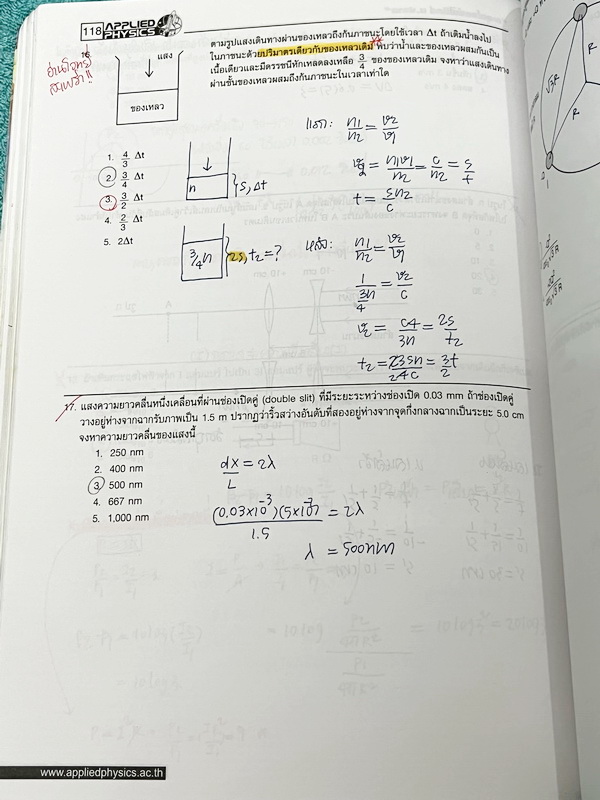 118 APPLIED PHYSICS
16.
อ่านโจทย์
ตามรูปแสงเดินทางผ่านของเหลวถึงก้นภาชนะโดยใช้เวลา Δt ถ้าเติมน้ำลงไป
ในภาชนะด้วยปริมาตรเดียวกับของเหลวเดิม พบว่าน้ำและของเหลวผสมกันเป็น
เนื้อเดียวและมีดรรชนีหักเหลดลงเหลือ 3/4 ของของเหลวเดิม จงหาว่าแสงเดินทาง
ผ่านชั้นของเหลวผสมถึงก้นภาชนะในเวลาเท่าใด
แสง
ของเหลว
1. 4/3 Δt
2. 3/4 Δt
3. 3/2 Δt
4. 2/3 Δt
5. 2Δt
n
s, Δt
3/4 n
2s, t2 = ?
แรก: n1/n2 = v2/v1
v2 = n1v1/n2 = c/n2 = s/t
t = sn2/c
หลัง: n1/n2 = v2/v1
1/(3n/4) = v2/c
v2 = c4/3n = 2s/t2
t2 = 23sn/24c = 3/2 t
17. แสงความยาวคลื่นหนึ่งเคลื่อนที่ผ่านช่องเปิดคู่ (double slit) ที่มีระยะระหว่างช่องเปิด 0.03 mm ถ้าช่องเปิดคู่
วางอยู่ห่างจากฉากรับภาพเป็น 1.5 m ปรากฏว่าริ้วสว่างอันดับที่สองอยู่ห่างจากจุดกึ่งกลางฉากเป็นระยะ 5.0 cm
จงหาความยาวคลื่นของแสงนี้
1. 250 nm
2. 400 nm
3. 500 nm
4. 667 nm
5. 1,000 nm
dx/L = 2λ
(0.03x10^-3)(5x10^-2)/1.5 = 2λ
λ = 500nm
√3R
R
R
Q
www.appliedphysics.ac.th